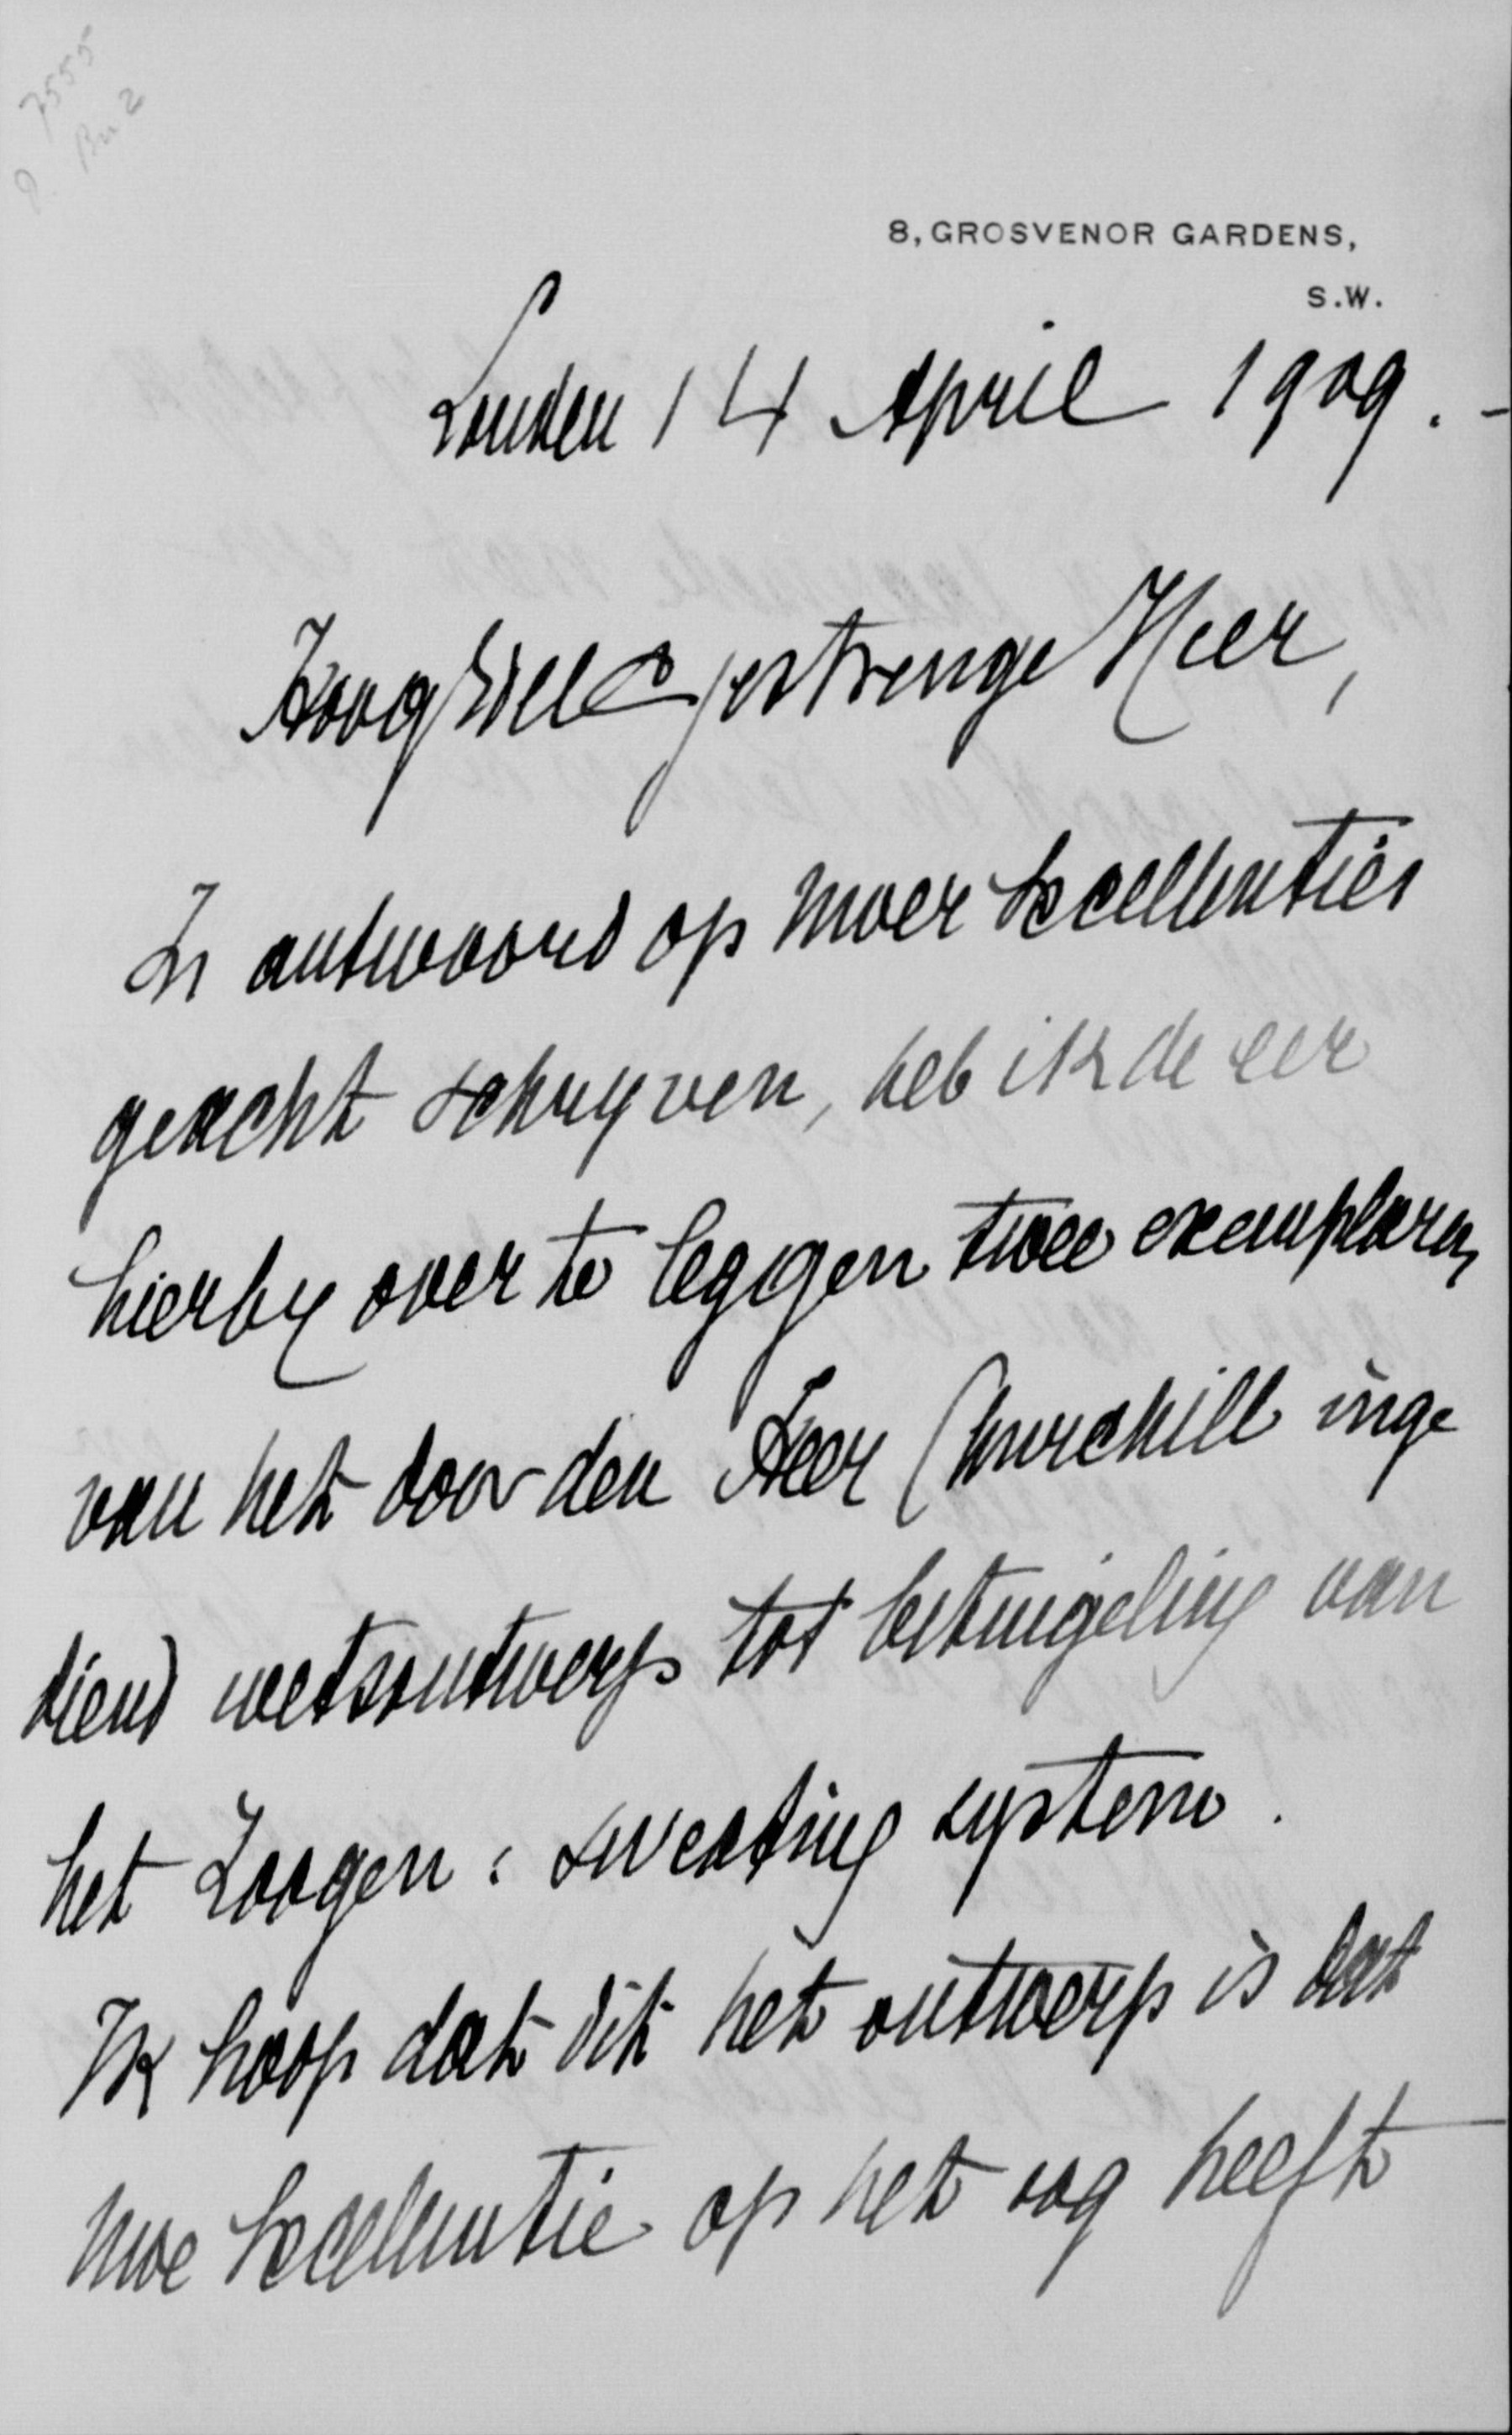 7555
8, GROSVENOR GARDENS,
S.W.
Londen 14 April 1909.-
HoogEdelgestrenge Heer,
In antwoord op Uwer Excellentie's
geacht schryven, heb ik de eer
hierby over te leggen twee exemplaren
van het door den Heer Churchill inge
diend wetsontwerp tot beteugeling van
het Zoogen: sweating system.
Ik hoop dat dit het ontwerp is dat
Uwe Excellentie op het oog heeft